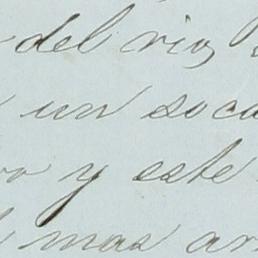 del rio,
un soca
y este
mas ar